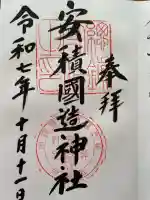 奉拝
安積國造神社
令和七年十月十一日